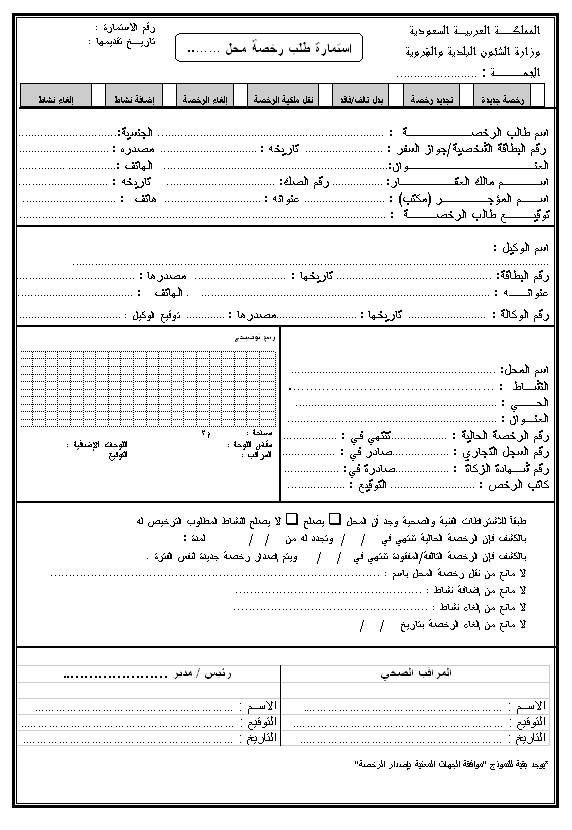 المملكة العربية السعودية
وزارة الشئون البلدية والقروية
رقم الاستمارة :
تاريخ تقديمها :
استمارة طلب رخصة محل ........
رخصة جديدة
تجديد رخصة
بدل تالف/فاقد
نقل ملكية الرخصة
إلغاء الرخصة
إضافة نشاط
إلغاء نشاط
اسم طالب الرخصة : ........ الجنسية: ........
رقم البطاقة الشخصية/جواز السفر : ........ تاريخه : ........ مصدره : ........
العنوان: ........ الهاتف : ........
اسم مالك العقار: ........ رقم الصك: ........ تاريخه : ........
اسم المؤجر (مكتب) : ........ عنوانه : ........ هاتف : ........
توقيع طالب الرخصة : ........
اسم الوكيل :
رقم البطاقة: ........ تاريخها : ........ مصدرها : ........
عنوانه : ........ الهاتف : ........
رقم الوكالة : ........ تاريخها : ........ مصدرها : ........ توقيع الوكيل : ........
اسم المحل: ........
النشاط : ........
الحي : ........
العنوان : ........
رقم الرخصة الحالية : ........ تنتهي في : ........
رقم السجل التجاري: ........ صادر في : ........
رقم شهادة الزكاة : ........ صادرة في: ........
كاتب الرخص : ........ التوقيع : ........
مساحة : م٢
مقاس اللوحة : اللوحات الإضافية :
المراقب : التوقيع
طبقاً للاشتراطات الفنية والصحية وجد أن المحل □ يصلح □ لا يصلح للنشاط المطلوب الترخيص له
بالكشف فإن الرخصة الحالية تنتهي في / / وتجدد له من / / لمدة :
بالكشف فإن الرخصة التالفة/المفقودة تنتهي في / / ويتم إصدار رخصة جديدة لنفس الفترة .
لا مانع من نقل رخصة المحل باسم : ........
لا مانع من إضافة نشاط : ........
لا مانع من إلغاء نشاط : ........
لا مانع من إلغاء الرخصة بتاريخ / /
المراقب الصحي
رئيس / مدير ........
الاسم : ........ الاسم : ........
التوقيع : ........ التوقيع : ........
التاريخ : ........ التاريخ : ........
*يوجد بقية للنموذج "موافقة الجهات المعنية بإصدار الرخصة"